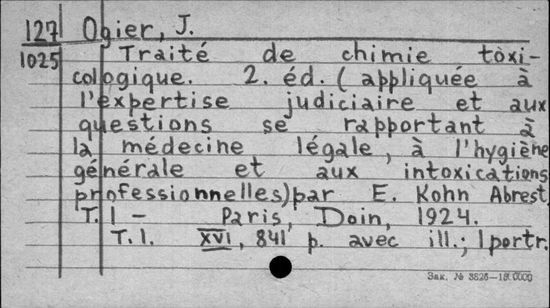 127 Ogier, J.
1025 Traité de chimie toxi-
cologique. 2. éd. (appliquée à
l'expertise judiciaire et aux
questions se rapportant à
la médecine légale, à l'hygiène
générale et aux intoxications
professionnelles) par E. Kohn Abrest.
T. 1 – Paris, Doin, 1924.
T. 1. XVI, 841 p. avec ill.; 1 portr.
Зак. № 3826—